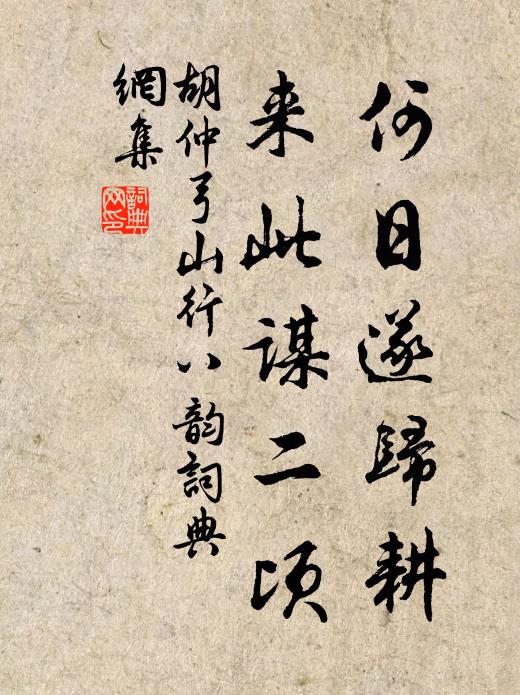 何日遂歸耕
来此谋二顷
胡仲弓山行八韵詞典
網集
詞典
网印